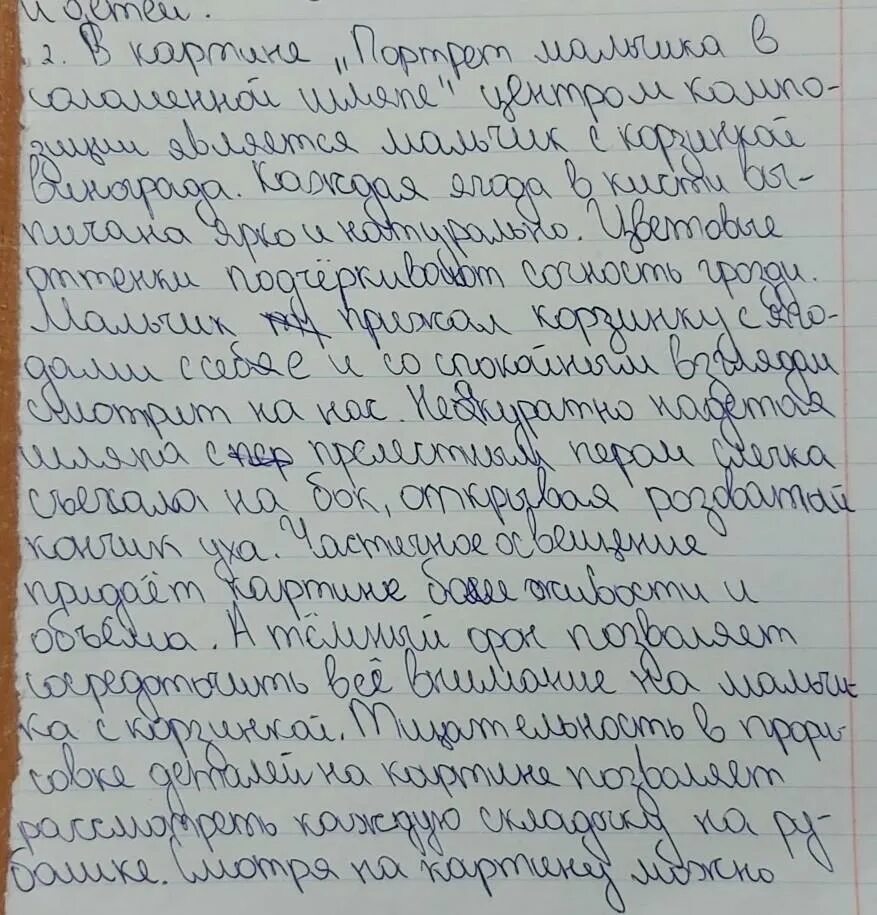 и детей.
2. В картине „Портрет мальчика в
соломенной шляпе" центром компо-
зиции является мальчик с корзинкой
винограда. Каждая ягода в кисти вы-
писана ярко и натурально. Цветовые
оттенки подчёркивают сочность грозди.
Мальчик прижал корзинку с яго-
дами с себе и со спокойным взглядом
смотрит на нас. Неаккуратно надетая
шляпа с прелестным пером слегка
съехала на бок, открывая розоватый
кончик уха. Частичное освещение
придаёт картине более живости и
объёма. А тёмный фон позволяет
сосредоточить всё внимание на мальчи-
ка с корзинкой. Тщательность в прори-
совке деталей на картине позволяет
рассмотреть каждую складочку на ру-
башке. Смотря на картину можно